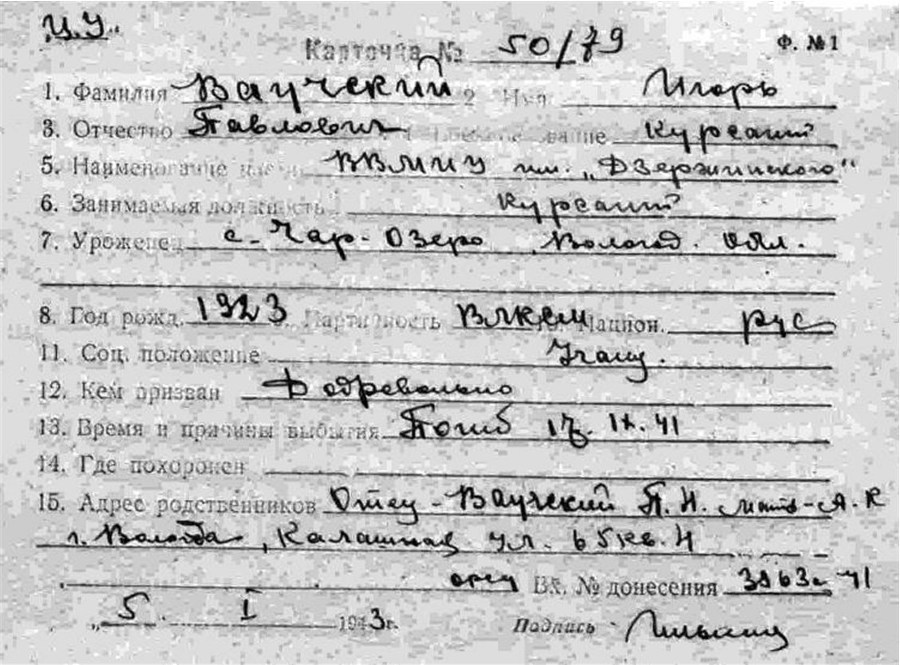 „Ц.У“
Карточка № 50/79 Ф. №1
1. Фамилия Ваучский 2 Имя Игорь
3. Отчество Павлович звание Курсант
5. Наименование части ВВМИУ им. „Дзержинского“
6. Занимаемая должность Курсант
7. Уроженец с. Чар-Озеро Вологод. обл.
8. Год рожд. 1923 Партийность ВЛКСМ Национ. рус
11. Соц. положение Учащ.
12. Кем призван Добровольно
13. Время и причины выбытия Погиб 17. IX. 41
14. Где похоронен
15. Адрес родственников Отец - Ваучский П. И. мать - А. К
г. Вологда, Калашная ул. 65 кв. 4
Вх. № донесения 3863с 41
„5. I 1943г. Подпись